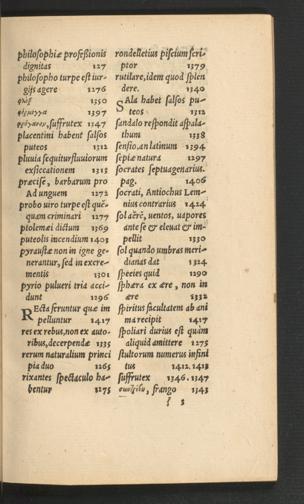 philosophiæ professionis
dignitas 127
philosopho turpe est iur-
gijs agere 1276
1350
1397
suffrutex 1347
placentini habent salsos
puteos 1312
pluuia sequitur fluuiorum
exiccationem 1315
præcisè, barbarum pro
Ad unguem 1272
probo uiro turpe est quē-
quam criminari 1277
ptolemæi dictum 1369
puteolis incendium 1403
pyraustæ non in igne ge-
nerantur, sed in excre-
mentis 1301
pyrio pulueri tria acci-
dunt 1296
REcta feruntur quæ im
pelluntur 1417
res ex rebus, non ex auto-
ribus, decerpendæ 1335
rerum naturalium princi
pia duo 1265
rixantes spectaculo ha-
bentur 1275
rondelletius piscium scri-
ptor 1379
rutilare, idem quod splen
dere. 1340
SAla habet salsos pu-
teos 1312
sandalo respondit aspala-
thum 1338
sensio, an latinum 1394
sepiæ natura 1297
socrates septuagenarius.
pag. 1406
socrati, Antiochus Lem-
nius contrarius 1424
sol aërē, uentos, uapores
ante se & eleuat & im-
pellit 1330
sol quando umbras meri-
dianas dat 1324
species quid 1290
sphæra ex ære, non in
ære 1332
spiritus facultatem ab ani
ma recipit 1417
spoliari durius est quàm
aliquid amittere 1275
stultorum numerus infini
tus 1412. 1413
suffrutex 1346. 1347
frango 1343